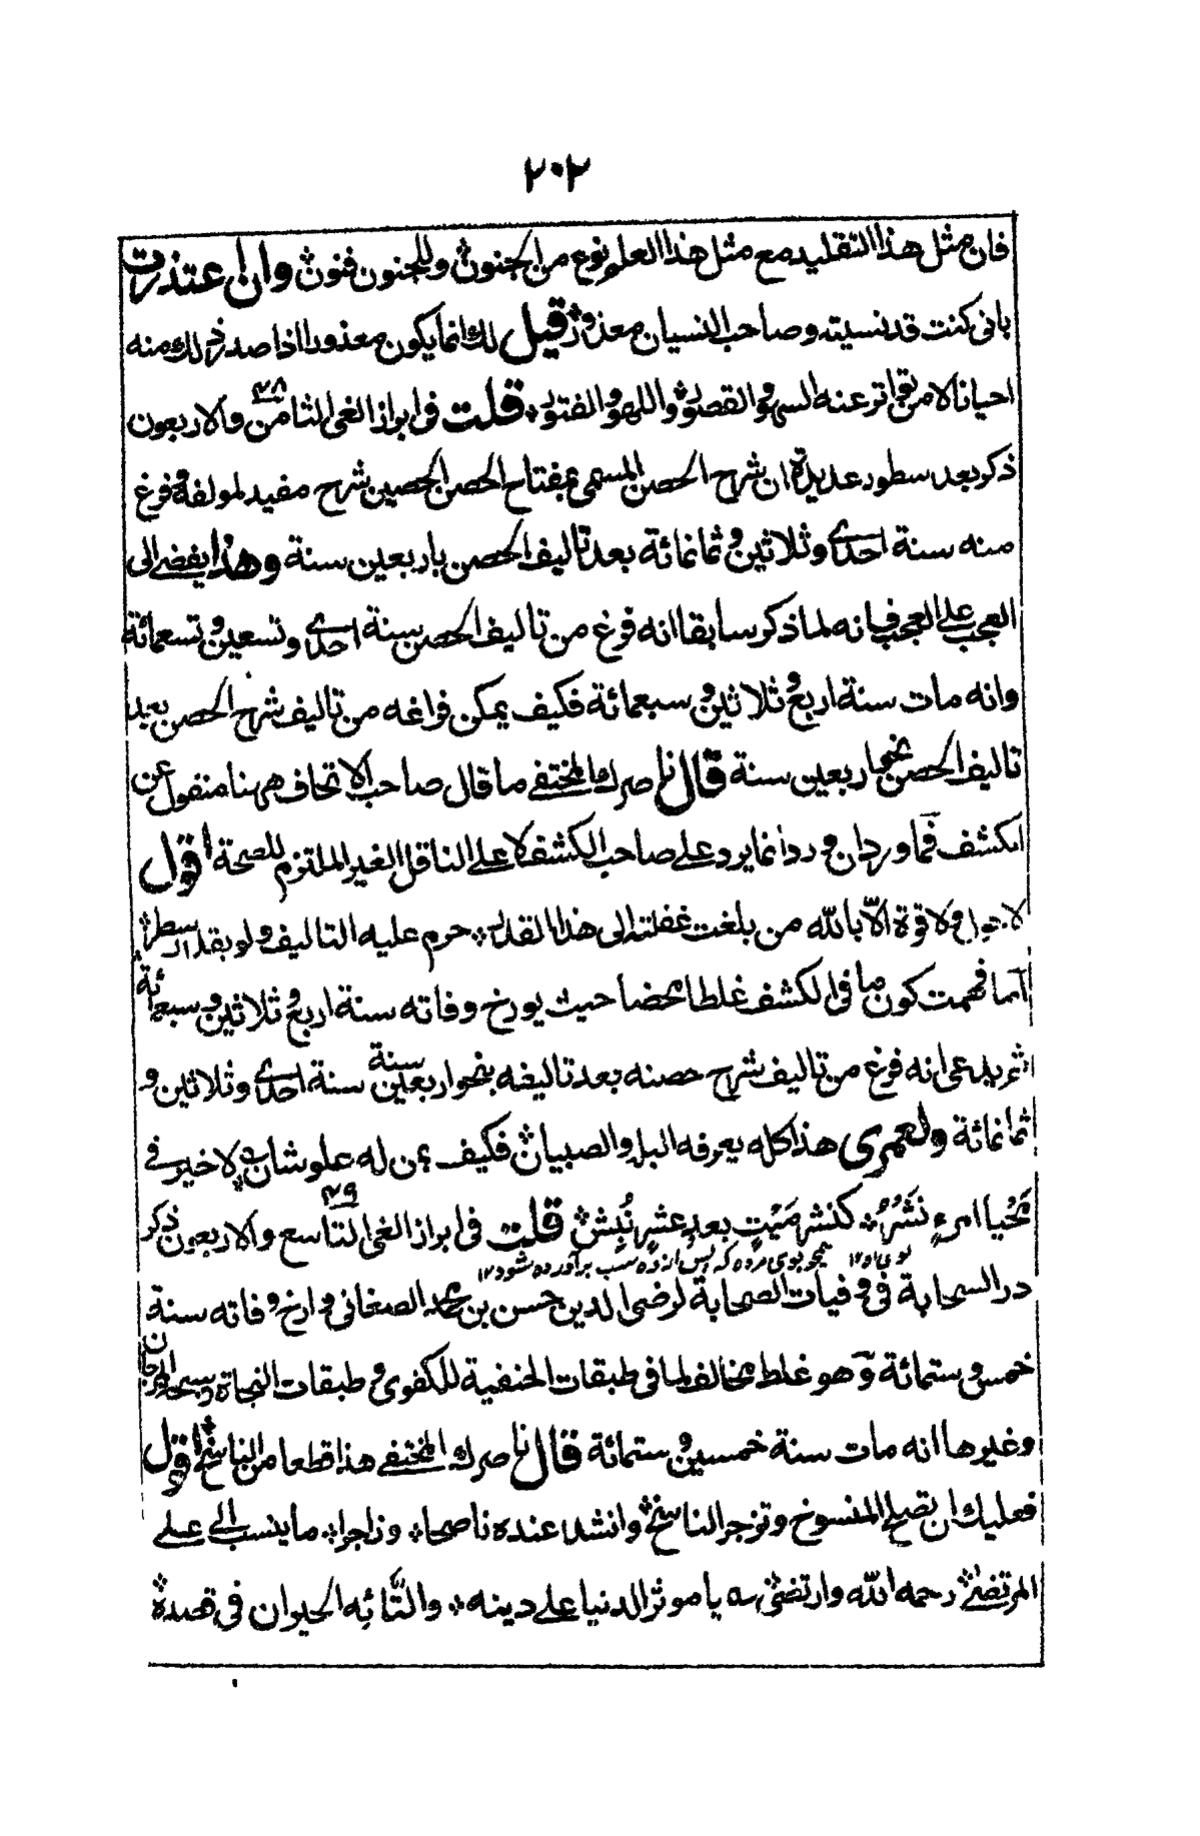 ٢٠٢
فان مثل هذا التقليد مع مثل هذا العلم نوع من الجنون وللجنون فنون وان اعتذرت
بانى كنت قد نسيته وصاحب النسيان معذور قيل لك انما يكون معذورا اذا صدر ذلك منه
احيانا لا من تواتر عنه السهو والقصور واللهو والفتور قلت فى ابراز الغى الثامن ٤٨ والاربعون
ذكر بعد سطور عديدة ان شرح الحصن المسمى بمفتاح الحصن الحصين شرح مفيد لمولفه فرغ
منه سنة احدى وثلاثين وثمانمائة بعد تاليف الحصن باربعين سنة وهذا يفضى الى
العجب على العجب فانه لما ذكر سابقا انه فرغ من تاليف الحصن سنة احدى وتسعين وتسعمائة
وانه مات سنة اربع وثلاثين وسبعمائة فكيف يمكن فراغه من تاليف شرح الحصن بعد
تاليف الحصن بنحو اربعين سنة قال ناصرك المختفى ما قال صاحب الاتحاف ههنا منقول عن
الكشف فما ورد ان ورد انما يرد على صاحب الكشف لا على الناقل الغير الملتزم للصحة اقول
لا حول ولا قوة الا بالله من بلغت غفلته الى هذا القدر حرم عليه التاليف ولو بقدر السطر
اما فهمت كون ما فى الكشف غلطا محضا حيث يورخ وفاته سنة اربع وثلاثين وسبعمائة
ثم يدعى انه فرغ من تاليف شرح حصنه بعد تاليفه بنحو اربعين سنة سنة احدى وثلاثين و
ثمانمائة ولعمرى هذا كله يعرفه البله والصبيان فكيف بمن له علو شان لا خير فى
مَحْيا امرءٍ نَشْرُهُ كنشر مَيْتٍ بعد عشرٍ نُبِش قلت فى ابراز الغى التاسع ٤٩ والاربعون ذكر
بوى او ١٢ همچو بوى مرده كه پس از ده شب برآورده شود ١٢
در السحابة فى وفيات الصحابة لرضى الدين حسن بن محمد الصغانى وارخ وفاته سنة
خمس وستمائة وهو غلط مخالف لما فى طبقات الحنفية للكفوى وطبقات النحاة وسبحة المرجان
وغيرها انه مات سنة خمسين وستمائة قال ناصرك المختفى هذا قطعا من الناسخ اقول
فعليك ان تصحح المنسوخ وتزجر الناسخ وانشد عنده ناصحا وزاجرا ما ينسب الى على
المرتضى رحمه الله وارتضى سه يا موثر الدنيا على دينه والتائه الحيران فى قصده